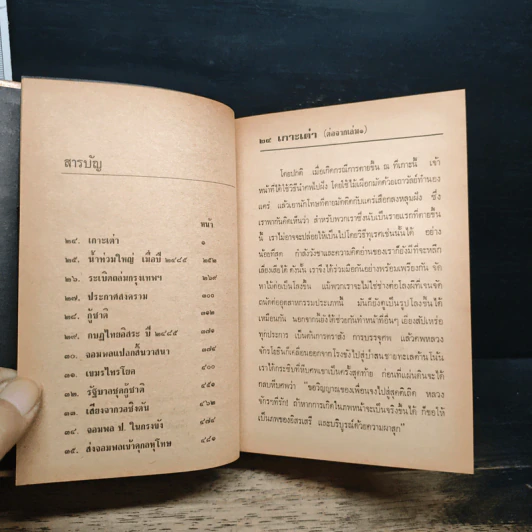 สารบัญ
หน้า
๒๔. เกาะเต่า ๑
๒๕. น้ำท่วมใหญ่ เมื่อปี ๒๔๘๕ ๒๕๒
๒๖. ระเบิดถล่มกรุงเทพฯ ๒๖๙
๒๗. ประกาศสงคราม ๓๐๐
๒๘. กู้ชาติ ๓๑๒
๒๙. กบฎไทยอิสระ ปี ๒๔๘๕ ๓๗๑
๓๐. จอมพลแปลกสิ้นวาสนา
๓๑. เขมรไพรโยค ๔๐๐
๓๒. รัฐบาลชุดกู้ชาติ ๔๕๑
๓๓. เสียงจากวอชิงตัน ๔๖๒
๓๔. จอมพล ป. ในกรงขัง ๔๗๔
๓๕. ส่งจอมพลเข้าคุกลหุโทษ ๔๘๑
๒๔ เกาะเต่า (ต่อจากเล่ม๑)
โดยปกติ เมื่อเกิดกรณีการตายขึ้น ณ ที่เกาะนี้ เจ้า
หน้าที่ได้ใช้วิธีนำศพไปฝัง โดยใช้ไม้เผือกมัดด้วยเถาวัลย์ทำนอง
แคร่ แล้วเอานักโทษที่ตายมัดติดกับแคร่เสือกลงหลุมฝัง ซึ่ง
เราพากันคิดเห็นว่า สำหรับพวกเราซึ่งนับเป็นรายแรกที่ตายขึ้น
นี้ เราไม่อาจจะปล่อยให้เป็นไปโดยวิธีทุเรศเช่นนั้นได้ อย่าง
น้อยที่สุด กำลังวังชาและความคิดอ่านของเราก็ยังมีที่จะหลีก
เลี่ยงเสียได้ ดังนั้น เราจึงได้ร่วมมือกันอย่างพร้อมเพรียงกัน จัด
หาไม้ต่อเป็นโลงขึ้น แม้พวกเราจะไม่ใช่ช่างต่อโลงผีที่เจนจัด
ถนัดต่ออุตสาหกรรมประเภทนี้ มันก็ยังดูเป็นรูปโลงขึ้นได้
เหมือนกัน นอกจากนี้ยังได้ช่วยกันทำหน้าที่อื่นๆ เยี่ยงสัปเหร่อ
ทุกประการ เป็นต้นการตราสัง การบรรจุศพ แล้วศพหลวง
จักรโยธินก็เคลื่อนออกจากโรงขังไปสู่ป่าสนชายทะเลด้านโน้น
เราได้กระซิบที่หีบศพเขาเป็นครั้งสุดท้าย ก่อนที่แผ่นดินจะได้
กลบหีบศพว่า “ขอวิญญาณของเพื่อนจงไปสู่สุคติเถิด หลวง
จักรฯที่รัก! ถ้าหากการเกิดในภพหน้าจะเป็นจริงขึ้นได้ ก็ขอให้
เป็นภพของอิสรเสรี และบริบูรณ์ด้วยความผาสุก”